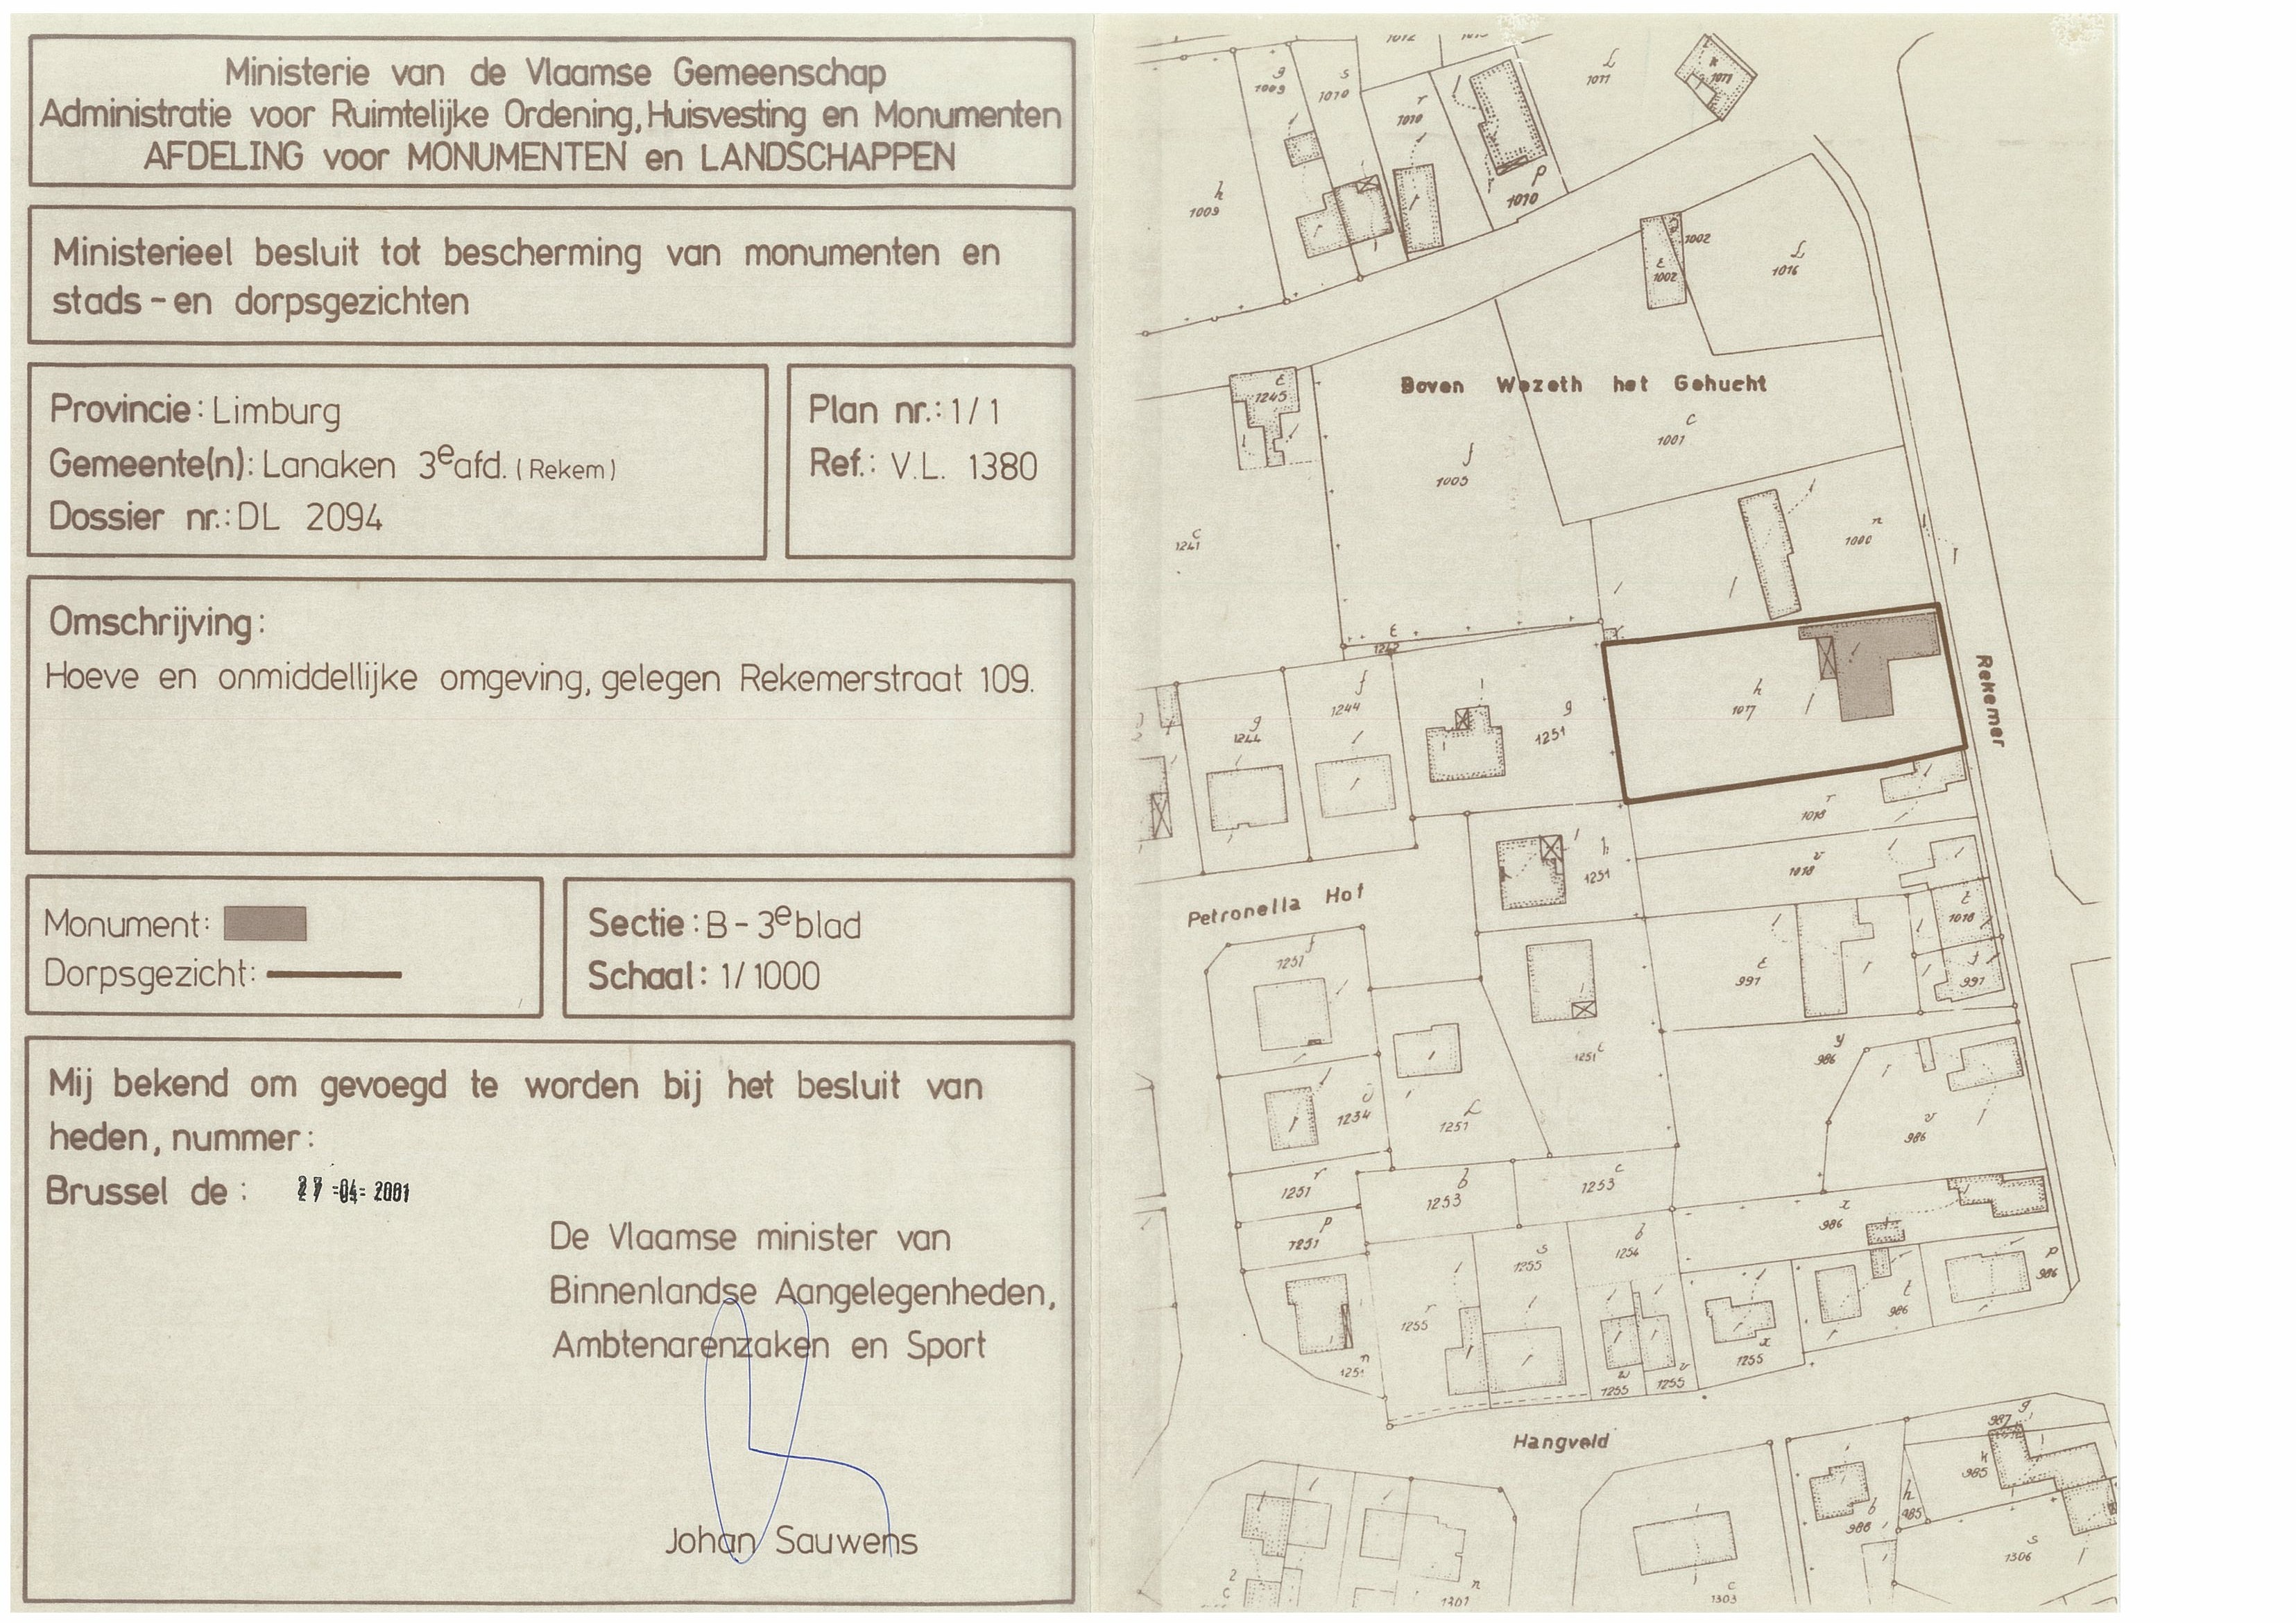 Ministerie van de Vlaamse Gemeenschap
Administratie voor Ruimtelijke Ordening, Huisvesting en Monumenten
AFDELING voor MONUMENTEN en LANDSCHAPPEN
Ministerieel besluit tot bescherming van monumenten en
stads-en dorpsgezichten
Provincie: Limburg
Gemeente(n): Lanaken 3e afd. (Rekem)
Dossier nr.: DL 2094
Plan nr.: 1/1
Ref.: V.L. 1380
Omschrijving:
Hoeve en onmiddellijke omgeving, gelegen Rekemerstraat 109.
Monument:
Dorpsgezicht:
Sectie: B-3e blad
Schaal: 1/1000
Mij bekend om gevoegd te worden bij het besluit van
heden, nummer:
Brussel de: 27 -04- 2001
De Vlaamse minister van
Binnenlandse Aangelegenheden,
Ambtenarenzaken en Sport
Johan Sauwens
g
1009
s
1010
r
1010
p
1010
L
1011
k
1011
h
1009
1002
E
1002
L
1016
E
1245
Boven Wezeth het Gehucht
c
1001
f
1003
n
1000
C
1241
E
1242
h
1017
Rekemer
g
1244
f
1244
g
1251
r
1018
v
1018
h
1251
Petronella Hof
t
1018
f
1251
E
991
f
991
1251
y
986
v
986
1234
L
1251
r
1251
b
1253
c
1253
p
1251
x
986
s
1255
b
1254
p
986
r
1255
t
986
n
1251
w
1255
v
1255
x
1255
Hangveld
g
987
k
985
h
985
b
986
s
1306
n
1301
c
1303